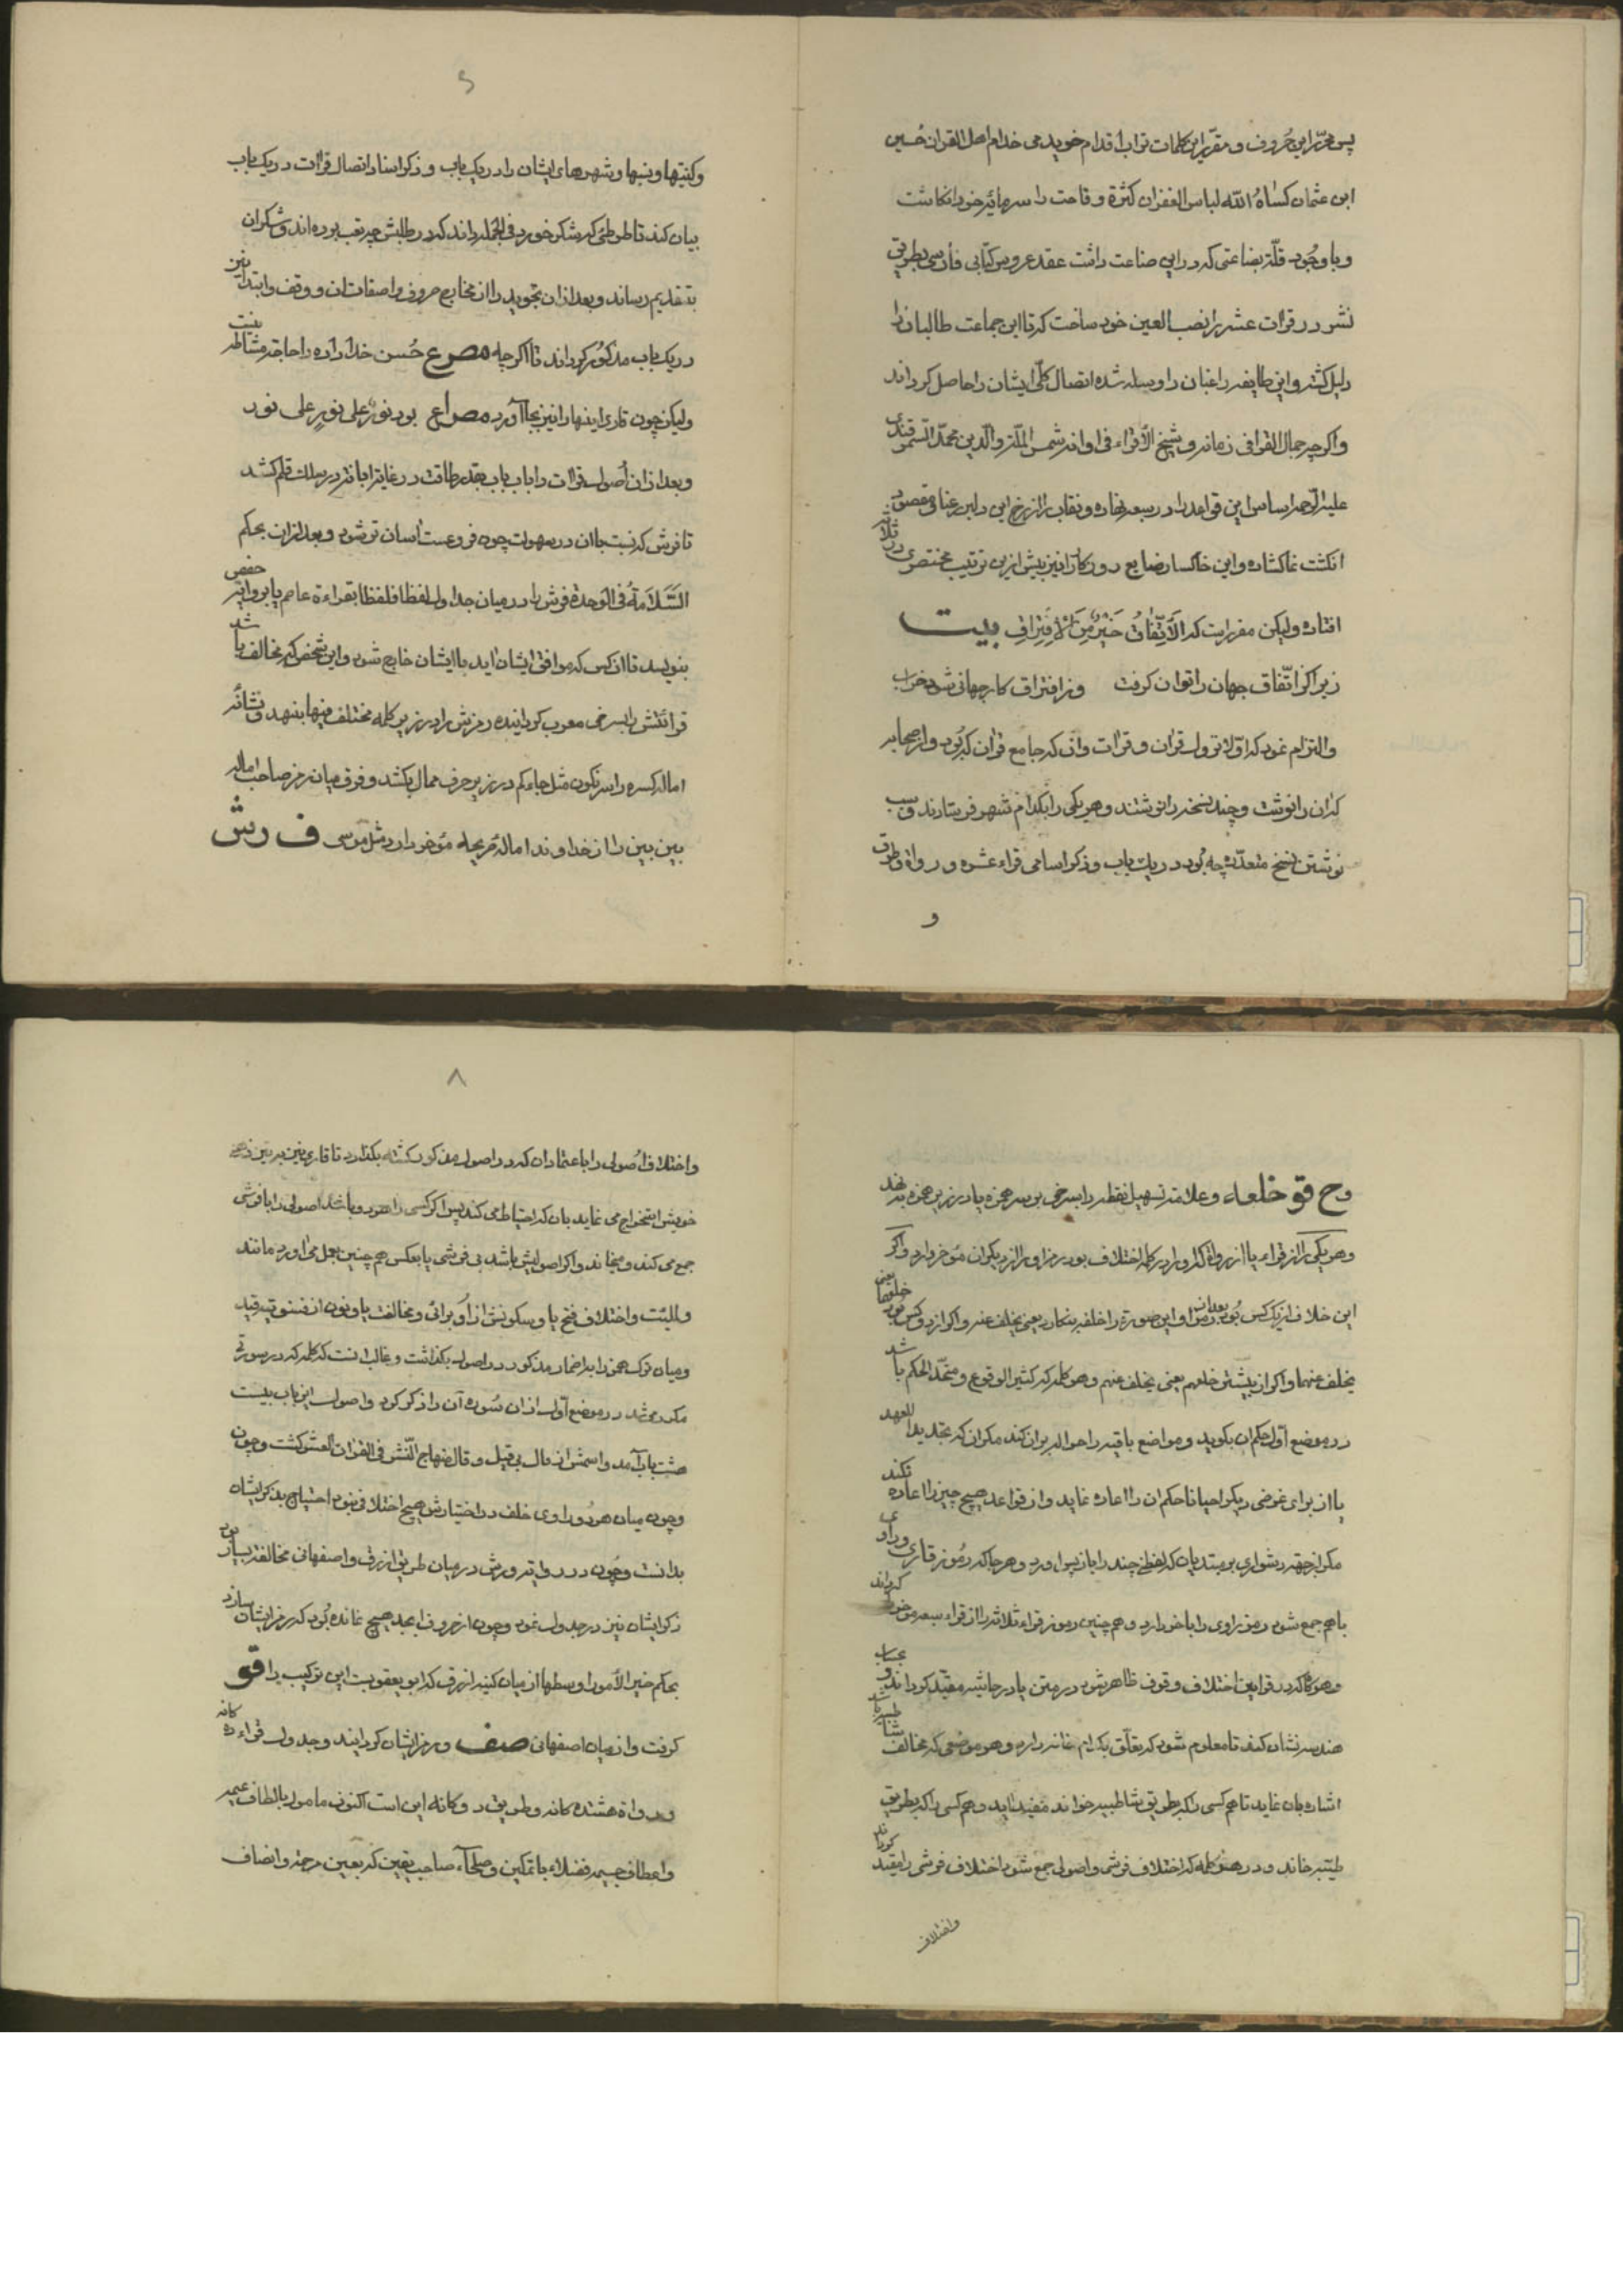 پس محرّر این حُروف و مقرّر این کلمات تراب اقدام خدام اهل القران حُسین
ابن عثمان کساهُ الله لباس الغفران کثرة وقاحت را سرمائهٔ خود انکاشت
و با وجُود قلّة بضاعتی که در این صناعت داشت عقد عروس کتابی فارسی بطریق
نشر در قرات عشر را نصب العین خود ساخت که تا این جماعت طالبان را
دلیل کشته و این طایفه راغبان را وسیله شده اتصال کلّی ایشان را حاصل کرداند
واکرچه جمال القرا فی زمانه و شیخ الاقراء فی اوانه شمس الملّة والدّین محمّد السّمرقندی
علیه الرّحمه اساس این قواعد را در سبعه نهاده و نقاب را از رخ این دلبر رعنا فی مقصود
انکشت نما کشاده و این خاکسار ضایع روزکار را نیز پیش ازین ترتیب مختصری در ثلاثه
افتاده ولیکن مقرر است که الاَتِّفَاقُ خَیْرٌ مِنَ الاِفتِرَاقِ بیت
زیرا کز اتّفاق جهان را توان کرفت وز افتراق کار جهانی شود خراب
والتزام نمود که اوّلا نزول قران و قرات وآن که جامع قران که بُود و از صحابه
که ان را نوشت و چند نسخه را نوشتند و هر یکی را بکدام شهر فرستادند و سبب
نوشتن نسخ متعدّده چه بُود در یک باب و ذکر اسامی قراء عشره و رواة و طرق
و
وکنیتها ونسبها وشهرهای ایشان را در یک باب و ذکر اسناد اتصال قراات در یک باب
بیان کند تا طوطئی که شکر خورد فی الجمله داند که در طلبش چه تعب برده اند وشکران
بتقدیم رساند و بعد ازان تجوید را از مخارج حروف واصفات ان و وقف وابتدا نیز
در یک باب مذکُور کرداند تا اکرچه مصرع حُسن خدا داده را حاجة مشاطه نیست
ولیکن چون قاری اینها را نیز بجا آورد مصراع بود نورٌ علی نورٍ علی نور
و بعد ازان اُصول قراات را باب باب بقدر طاقت در غایة ابانة در سلک قلم کشد
تا فرش که نسبت باان در سهولت چون فروعست آسان تر شود و بعد ازان بحکم
السَّلَامَةُ فی الوَحدة فرش را در میان جداول لفظا فلفظا بقراءة عاصم یا بروایة حفص
بنویسد تا ان کس که موافق ایشان اید با ایشان خارج شود و این شخص که مخالف باشد
قرائتش را بسرخی معرب کردانیده رمزش را در زیر کلمه مختلف فیها بنهد و نشانهٔ
اماله کسره را سرنکون مثل جاءکم در زیر حرف ممال بکشد و فرق میان رمز صاحب اماله
بین بین را از خداوند امالهٔ صریحه مؤخر دارد مثل موسی ف رش
وح قو خلعاء وعلامة تسهیل نقطه را بسرخی بر سر همزه یا در زیر همزه بنهد
وهر یکی را از قراء یا از رواة که او را در کلمه اختلاف بود رمز او را از دیکران مؤخر دارد واکر
این خلاف از یک کس بُود بعد از رمز او این صورة را خلف بنکارد یعنی بخلف عنه واکر از دو کس بُود خلفهما یعنی
بخلف عنهما واکر از بیشتر خلفهم یعنی بخلف عنهم وهر کلمه که کثیر الوقوع و متحّد الحکم باشد
در موضع اوّل حکم ان بکوید ومواضع باقیه را حواله بران کند مکر ان که تجدیدا للعهد
یا از برای غرضی دیکر احیانا حکم ان را اعاده نماید و از قواعد هیچ چیز را اعاده نکند
مکر از جهة دشواری بر مبتدیان که لفظی چند را باز پس اورد وهر جا که رمُوز قاری و راوی
باهم جمع شود رموز راوی را با خر دارد وهم چنین رموز قراء ثلاثه را از قراء سبعه مؤخر کرداند
وهر کاه که در قراات اختلاف وقوف ظاهر شود در متن یا در حاشیه مقیّد کرداند و بحساب
هندسه نشان کند تا معلوم شود که تعلّق بکدام خانه دارد وهر موضعی که مخالف شاطبیه باشد
اشاره بان نماید تا هم کسی را که بطریق شاطبیه خواند مفید اید و هم کسی را که بطریق
طیّبه خاند و در هر کلمه که اختلاف فرشی و اصولی جمع شود اختلاف فرشی را مقید کرداند
واختلاف
واختلاف اُصولی را باعتماد ان که در اصول مذکور کشته بکذارد تا قاری نیز بر تیز ذهنی
خویش استخراج می نماید بان که احتیاط می کند پس اکر کسی را هر دو باشد اصولی را با فرشی
جمع می کند و میخاند واکر اصولیش باشد بی فرشی یا بعکس هم چنین بعمل می اورد مانند
و للبیت واختلاف فتح یا و سکونش از اُو برائی و مخالفت یا و نون از فسنوتیه قید
ومیان ترک همزه را بر اضمار مذکور در اصول بکذاشت و غالب انست که کلمه که در سورتی
مکرر می شد در موضع اوّل ازان سُوره آن را ذکر کرد واصول این باب بیست
هشت باب آمد و اسمش از مال بی قیل و قال منهاج النّشر فی القراات العشر کشت و چون
وچون میان هر دو راوی خلف در اختیارش هیچ اختلافی نبود احتیاج بذکر ایشان
ندانست وچُون در روایة ورش در میان طریق ازرق و اصفهانی مخالفة بسیار بود
ذکر ایشان نیز در جدول نمود وچون از حروف ابجد هیچ نمانده بُود که رمز ایشان سازد
بحکم خیر الاُمور اوسطها از میان کنیه ازرق که ابو یعقوبست این ترکیب را قو
کرفت و از میان اصفهانی صف و رمز ایشان کردانید و جدول قراء ده کانه
ورواة هشتده کانه وطریق دوکانه این است اکنون مامول بالطاف عمیمه
واعطاف جسیمه فضلاء با تمکین و صلحآء صاحب یقین که بعین مرحمة وانصاف